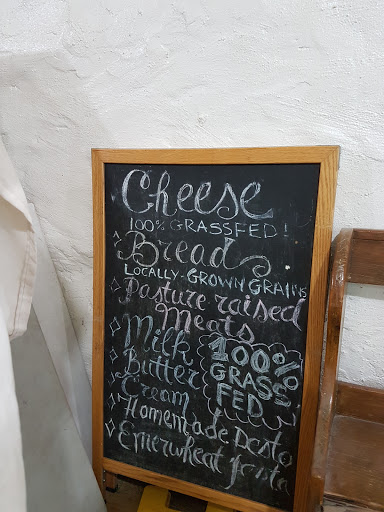 Cheese
100% GRASSFED!
Breads
LOCALLY-GROWN GRAINS
Pasture raised
Meats
Milk
Butter
Cream
100%
GRASS
FED
Homemade pesto
Emerwheat pasta